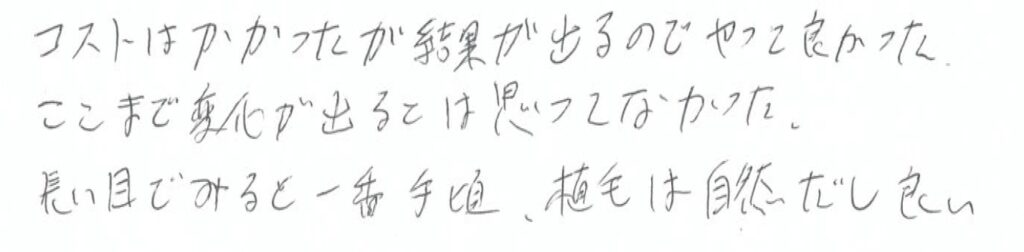 コストはかかったが結果が出るのでやって良かった.
ここまで変化が出るとは思ってなかった、
長い目でみると一番手頃、植毛は自然だし良い